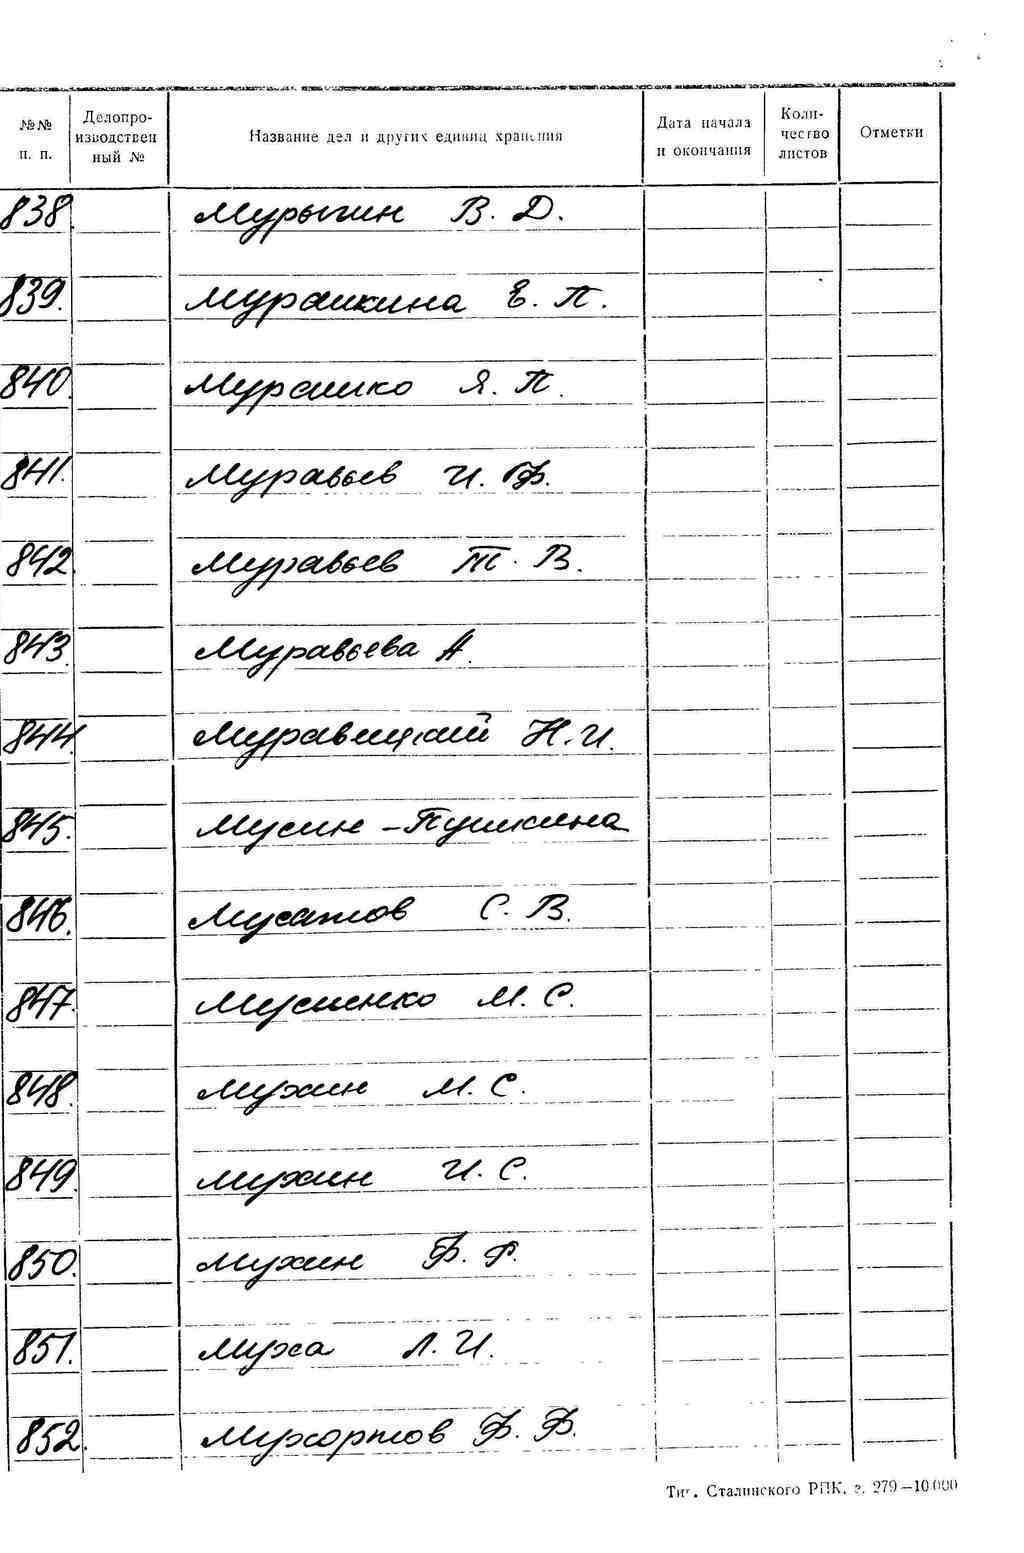 №№ п. п. Делопроизводствен ный № Название дел и других единиц хранения Дата начала и окончания Количество листов Отметки
838. Мурыгин В. Д.
839. Мурашкина Е. П.
840. Мурашко Я. П.
841. Муравьев И. Ф.
842. Муравьев Т. В.
843. Муравьева А.
844. Муравицкий Н. И.
845. Мусин-Пушкина
846. Мусатов С. В.
847. Мусиенко М. С.
848. Мухин М. С.
849. Мухин И. С.
850. Мухин Ф.
851. Муха Л. И.
852. Мухортов Ф. Ф.
Тип. Сталинского РПК, з. 279—10.000